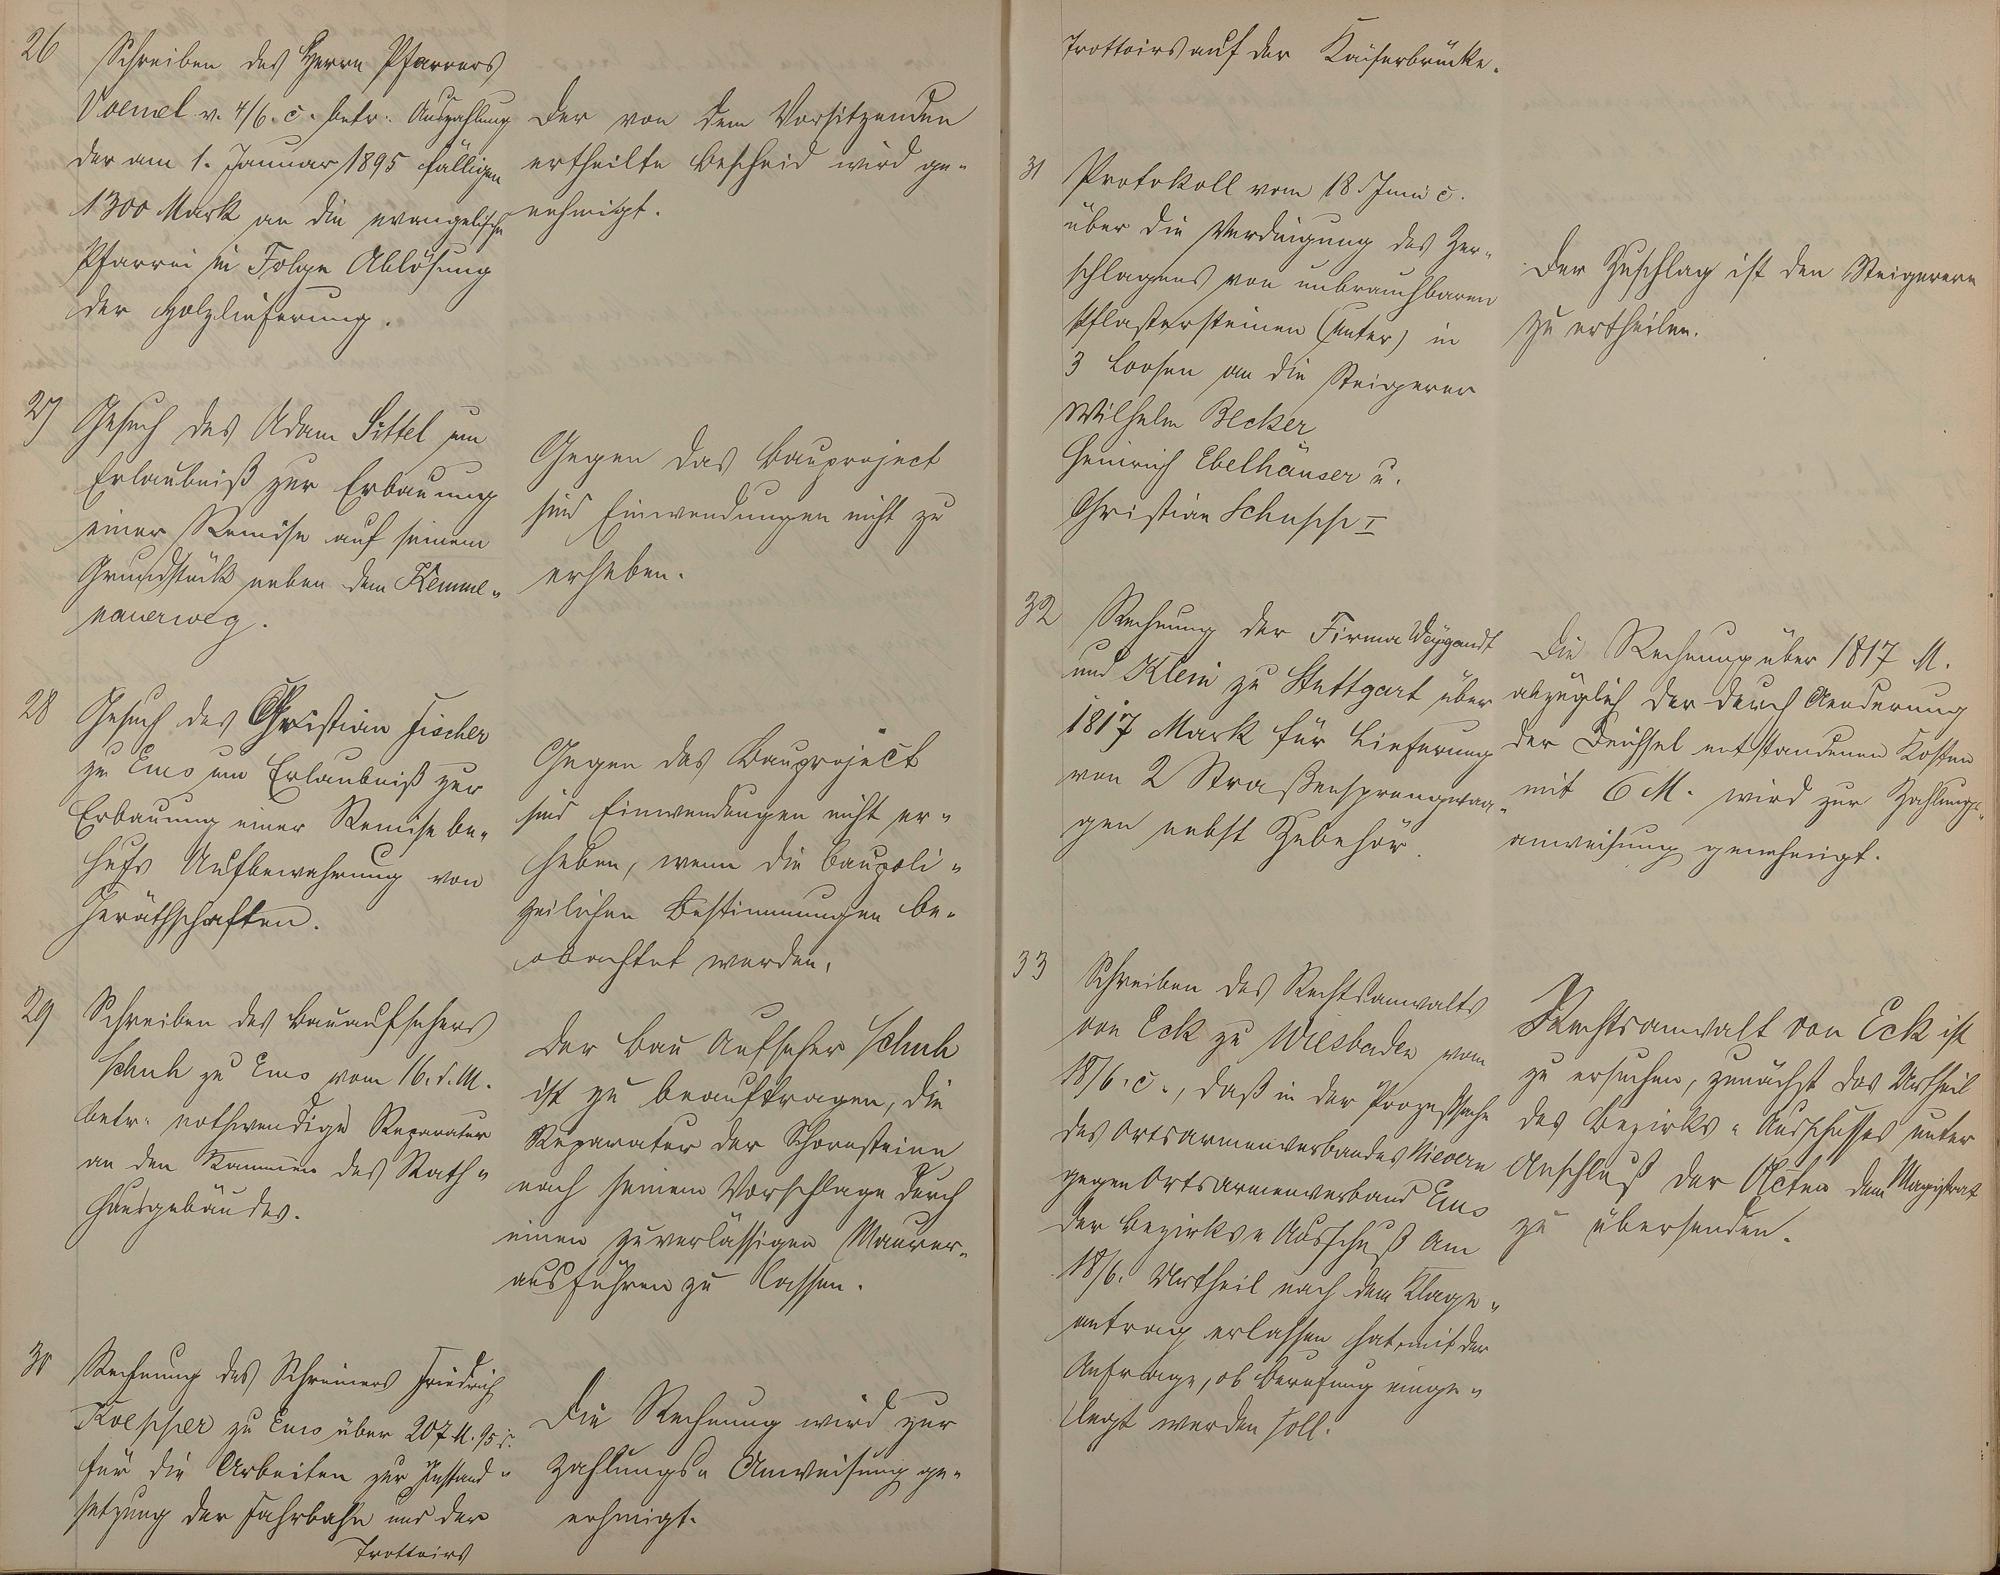 26
Schreiben des Herrn Pfarrers
Voemel v. 4/6. c. betr. Auszahlung
der am 1. Januar 1895 fälligen
1300 Mark an die evangelische
Pfarrei in Folge Ablösung
der Holzlieferung.
Der von dem Vorsitzenden
ertheilte Bescheid wird ge-
nehmigt.
27
Gesuch des Adam Sittel um
Erlaubniß zur Erbauung
einer Remise auf seinem
Grundstück neben dem Kemme-
nauerweg.
Gegen das Bauproject
sind Einwendungen nicht zu
erheben.
28
Gesuch des Christian Fischer
zu Ems um Erlaubniß zur
Erbauung einer Remise be-
hufs Aufbewahrung von
Geräthschaften.
Gegen das Bauproject
sind Einwendungen nicht er-
heben, wenn die baupoli-
zeilichen Bestimmungen be-
obachtet werden.
29
Schreiben des Bauaufsehers
Schuh zu Ems vom 16. d. M.
betr. nothwendige Reparatur
an den Kaminen des Rath-
hausgebäudes.
Der Bau Aufseher Schuh
ist zu beauftragen, die
Reparatur der Schornsteine
nach seinem Vorschlage durch
einen zuverlässigen Maurer
ausführen zu lassen.
30
Rechnung des Schreiners Friedrich
Koepper zu Ems über 207 M. 95 d.
für die Arbeiten zur Instand-
setzung der Fahrbahn und der
Trottoirs
Die Rechnung wird zur
Zahlungs-Anweisung ge-
nehmigt.
Trottoirs auf der Kaiserbrücke.
31
Protokoll vom 18. Juni c.
über die Verdingung des Zer-
schlagens von unbrauchbaren
Pflastersteinen (Unter) in
3 Loosen an die Steigerer
Wilhelm Becker
Heinrich Ebelhäuser u.
Christian Schupp I
Der Zuschlag ist den Steigerern
zu ertheilen.
32
Rechnung der Firma Weygandt
und Klein zu Stuttgart über
1817 Mark für Lieferung
von 2 Straßensprengwa-
gen nebst Zubehör.
Die Rechnung über 1817 M.
abzüglich der durch Aenderung
der Deichsel entstandenen Kosten
mit 6 M. wird zur Zahlungs-
anweisung genehmigt.
33
Schreiben des Rechtsanwalts
von Eck zu Wiesbaden vom
18/6. c., daß in der Prozeßsache
des Ortsarmenverbandes Nievern
gegen Ortsarmenverband Ems
der Bezirks-Ausschuß am
18/6. Urtheil nach dem Klage-
antrag erlassen hat, mit der
Anfrage, ob Berufung einge-
legt werden soll.
Rechtsanwalt von Eck ist
zu ersuchen, zunächst das Urtheil
des Bezirks-Ausschusses unter
Anschluß der Acten dem Magistrat
zu übersenden.